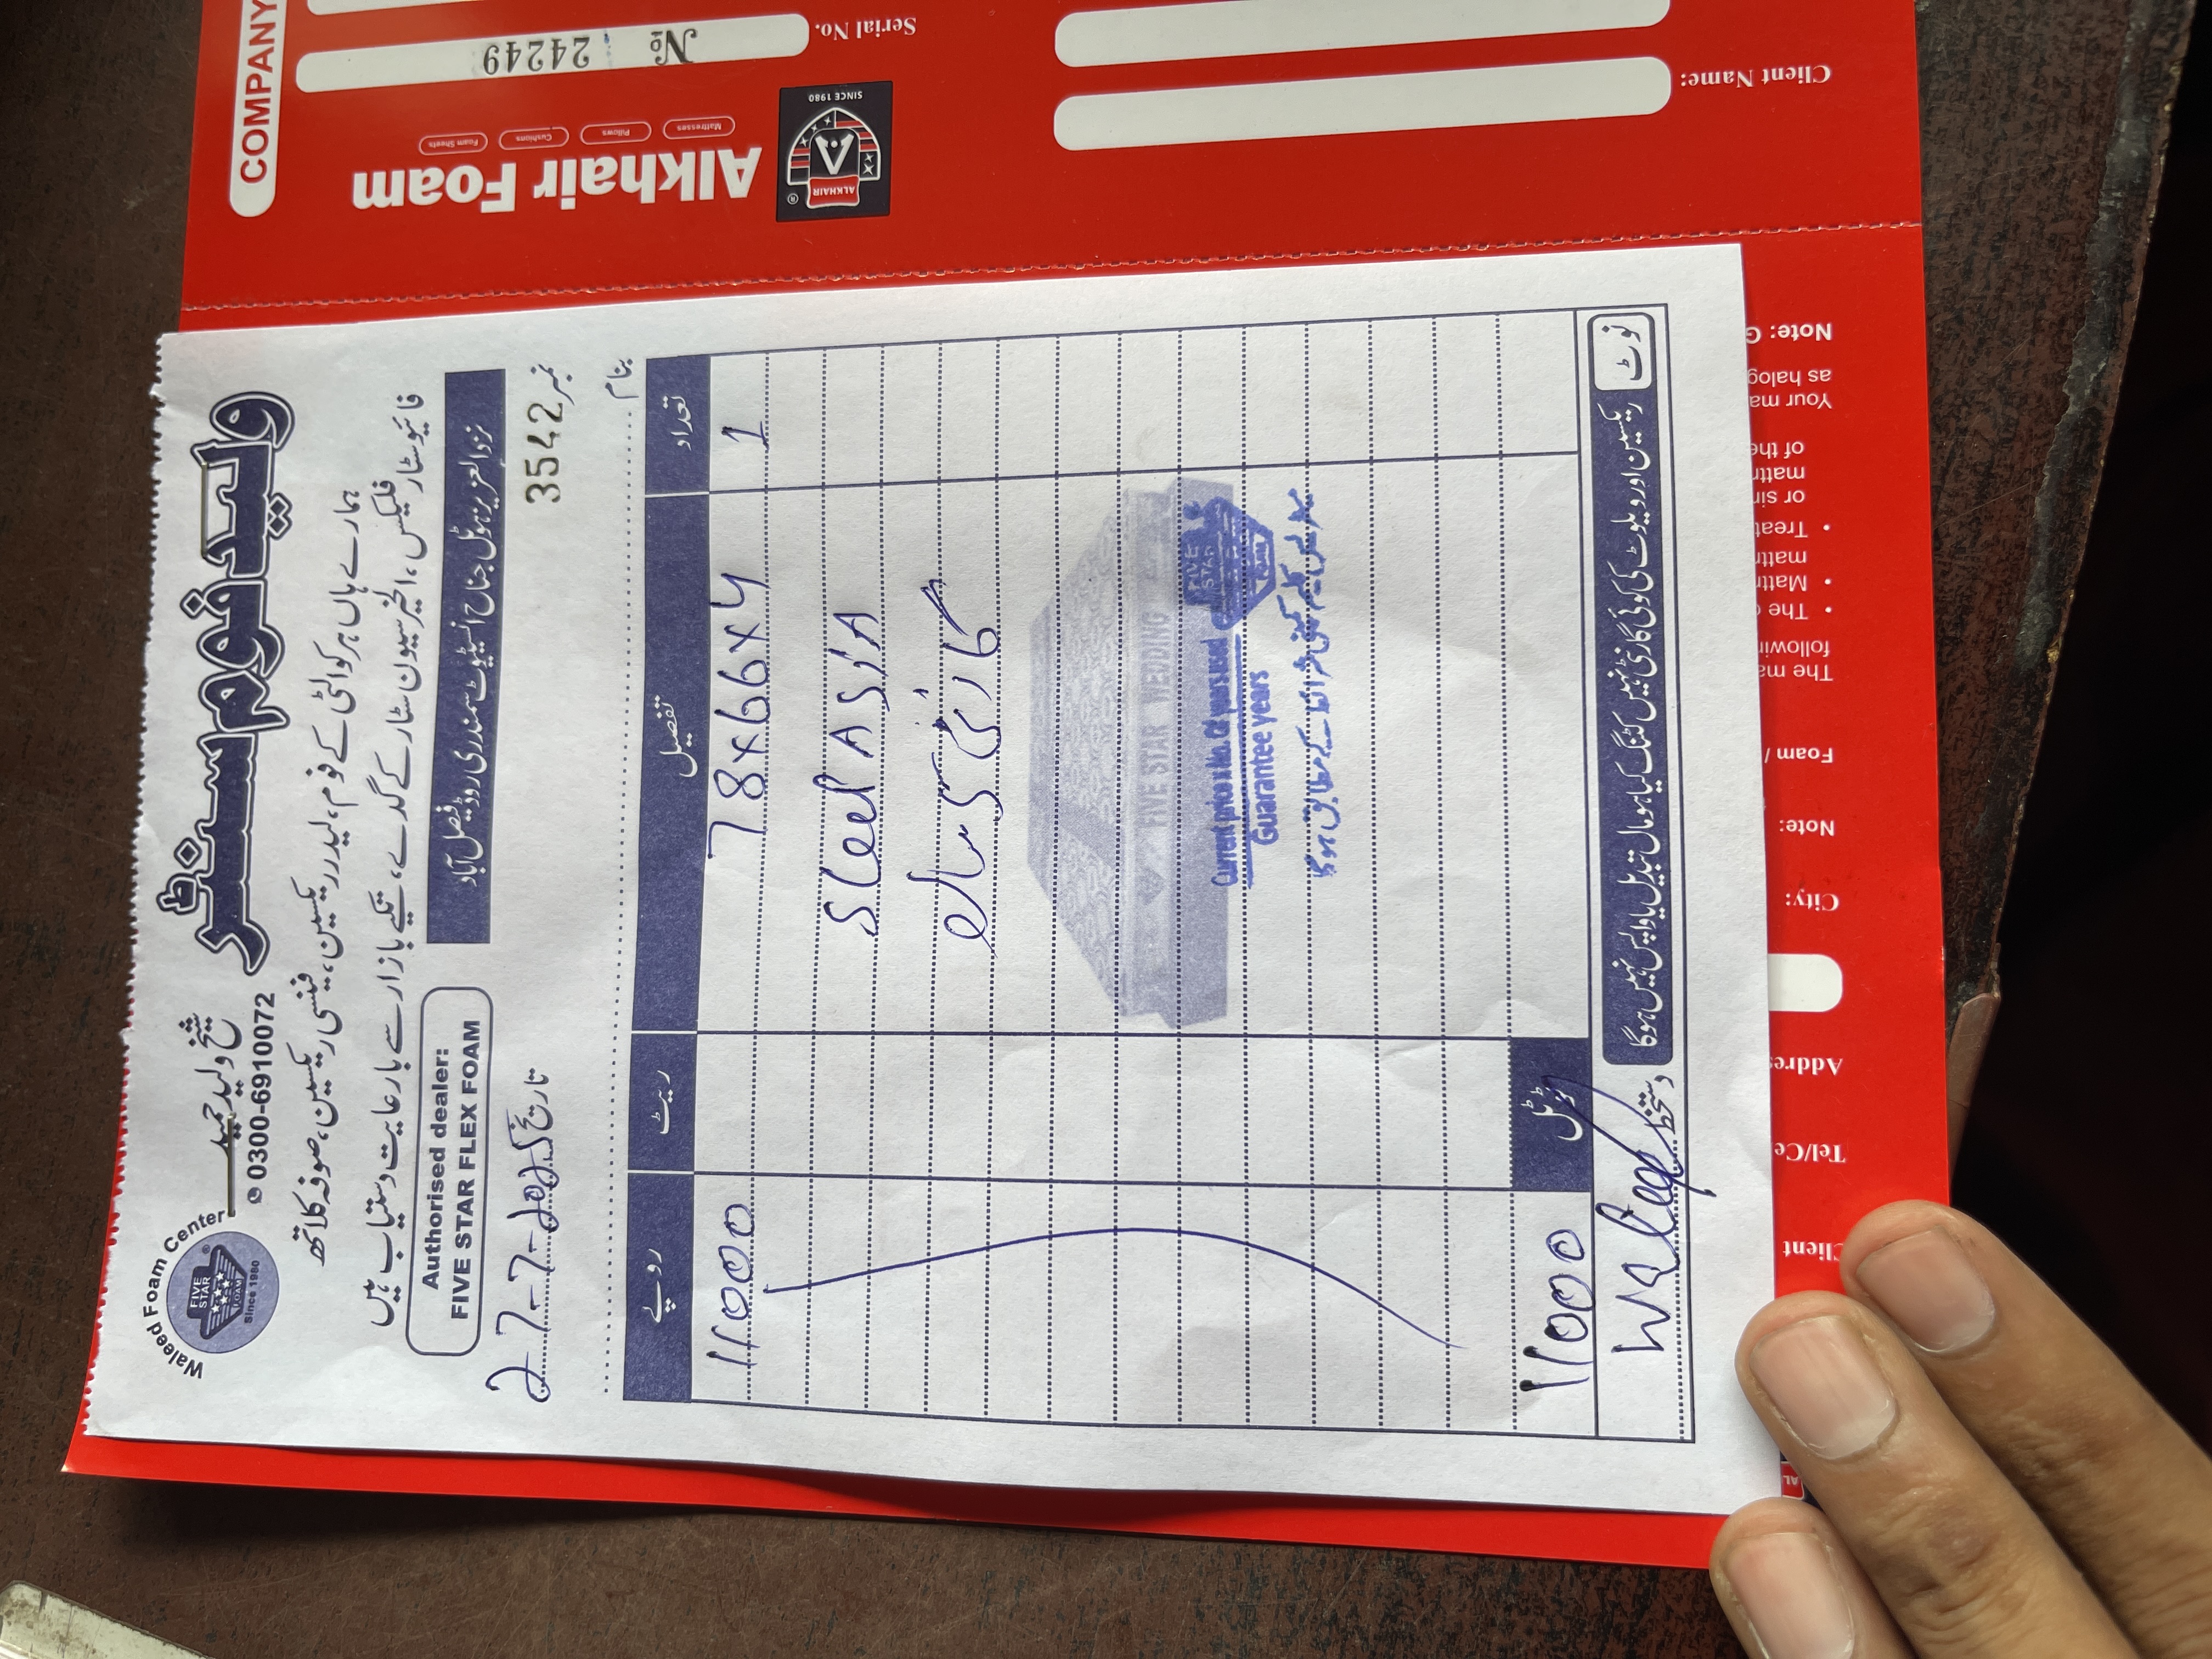 COMPANY
Serial No.
№ 24249
Client Name:
Alkhair Foam
Mattresses
Pillows
Cushions
Foam Sheets
ALKHAIR
SINCE 1980
ولید فوم سنٹر
شیخ ولید حمید
0300-6910072
Waleed Foam Center
FIVE STAR FOAM
Since 1980
ہمارے ہاں ہر کوالٹی کے فوم، لیدر ریکسین، فینسی ریکسین، صوفہ کلاتھ
فائیو سٹار فلیکس، الخیر سیون سٹار کے گدے، تکیے بازار سے بارعایت دستیاب ہیں
نزد العزیز ہوٹل جناح انسٹیٹیوٹ سمندری روڈ فیصل آباد
Authorised dealer:
FIVE STAR FLEX FOAM
نمبر 3542
تاریخ 27-7-2025
بنام
تعداد تفصیل ریٹ روپے
1 78x66x4 11000
SLeel ASiA
گارنٹی سال
FIVE STAR WEDDING
FIVE STAR
Current price x No. Of years used
Guarantee years
کلیم کمپنی شرائط کے مطابق ہوگا
ٹوٹل 11000
نوٹ
ریکسین اور ویلوٹ کی کوئی گارنٹی نہیں کٹنگ کیا ہوا مال تبدیل یا واپس نہیں ہوگا
دستخط Waleed
Note:
as halog
Your ma
of the
mattr
or sin
Treat
mattr
Mattr
The
followin
The ma
Foam /
Note:
City:
Addres
Tel/Ce
Client